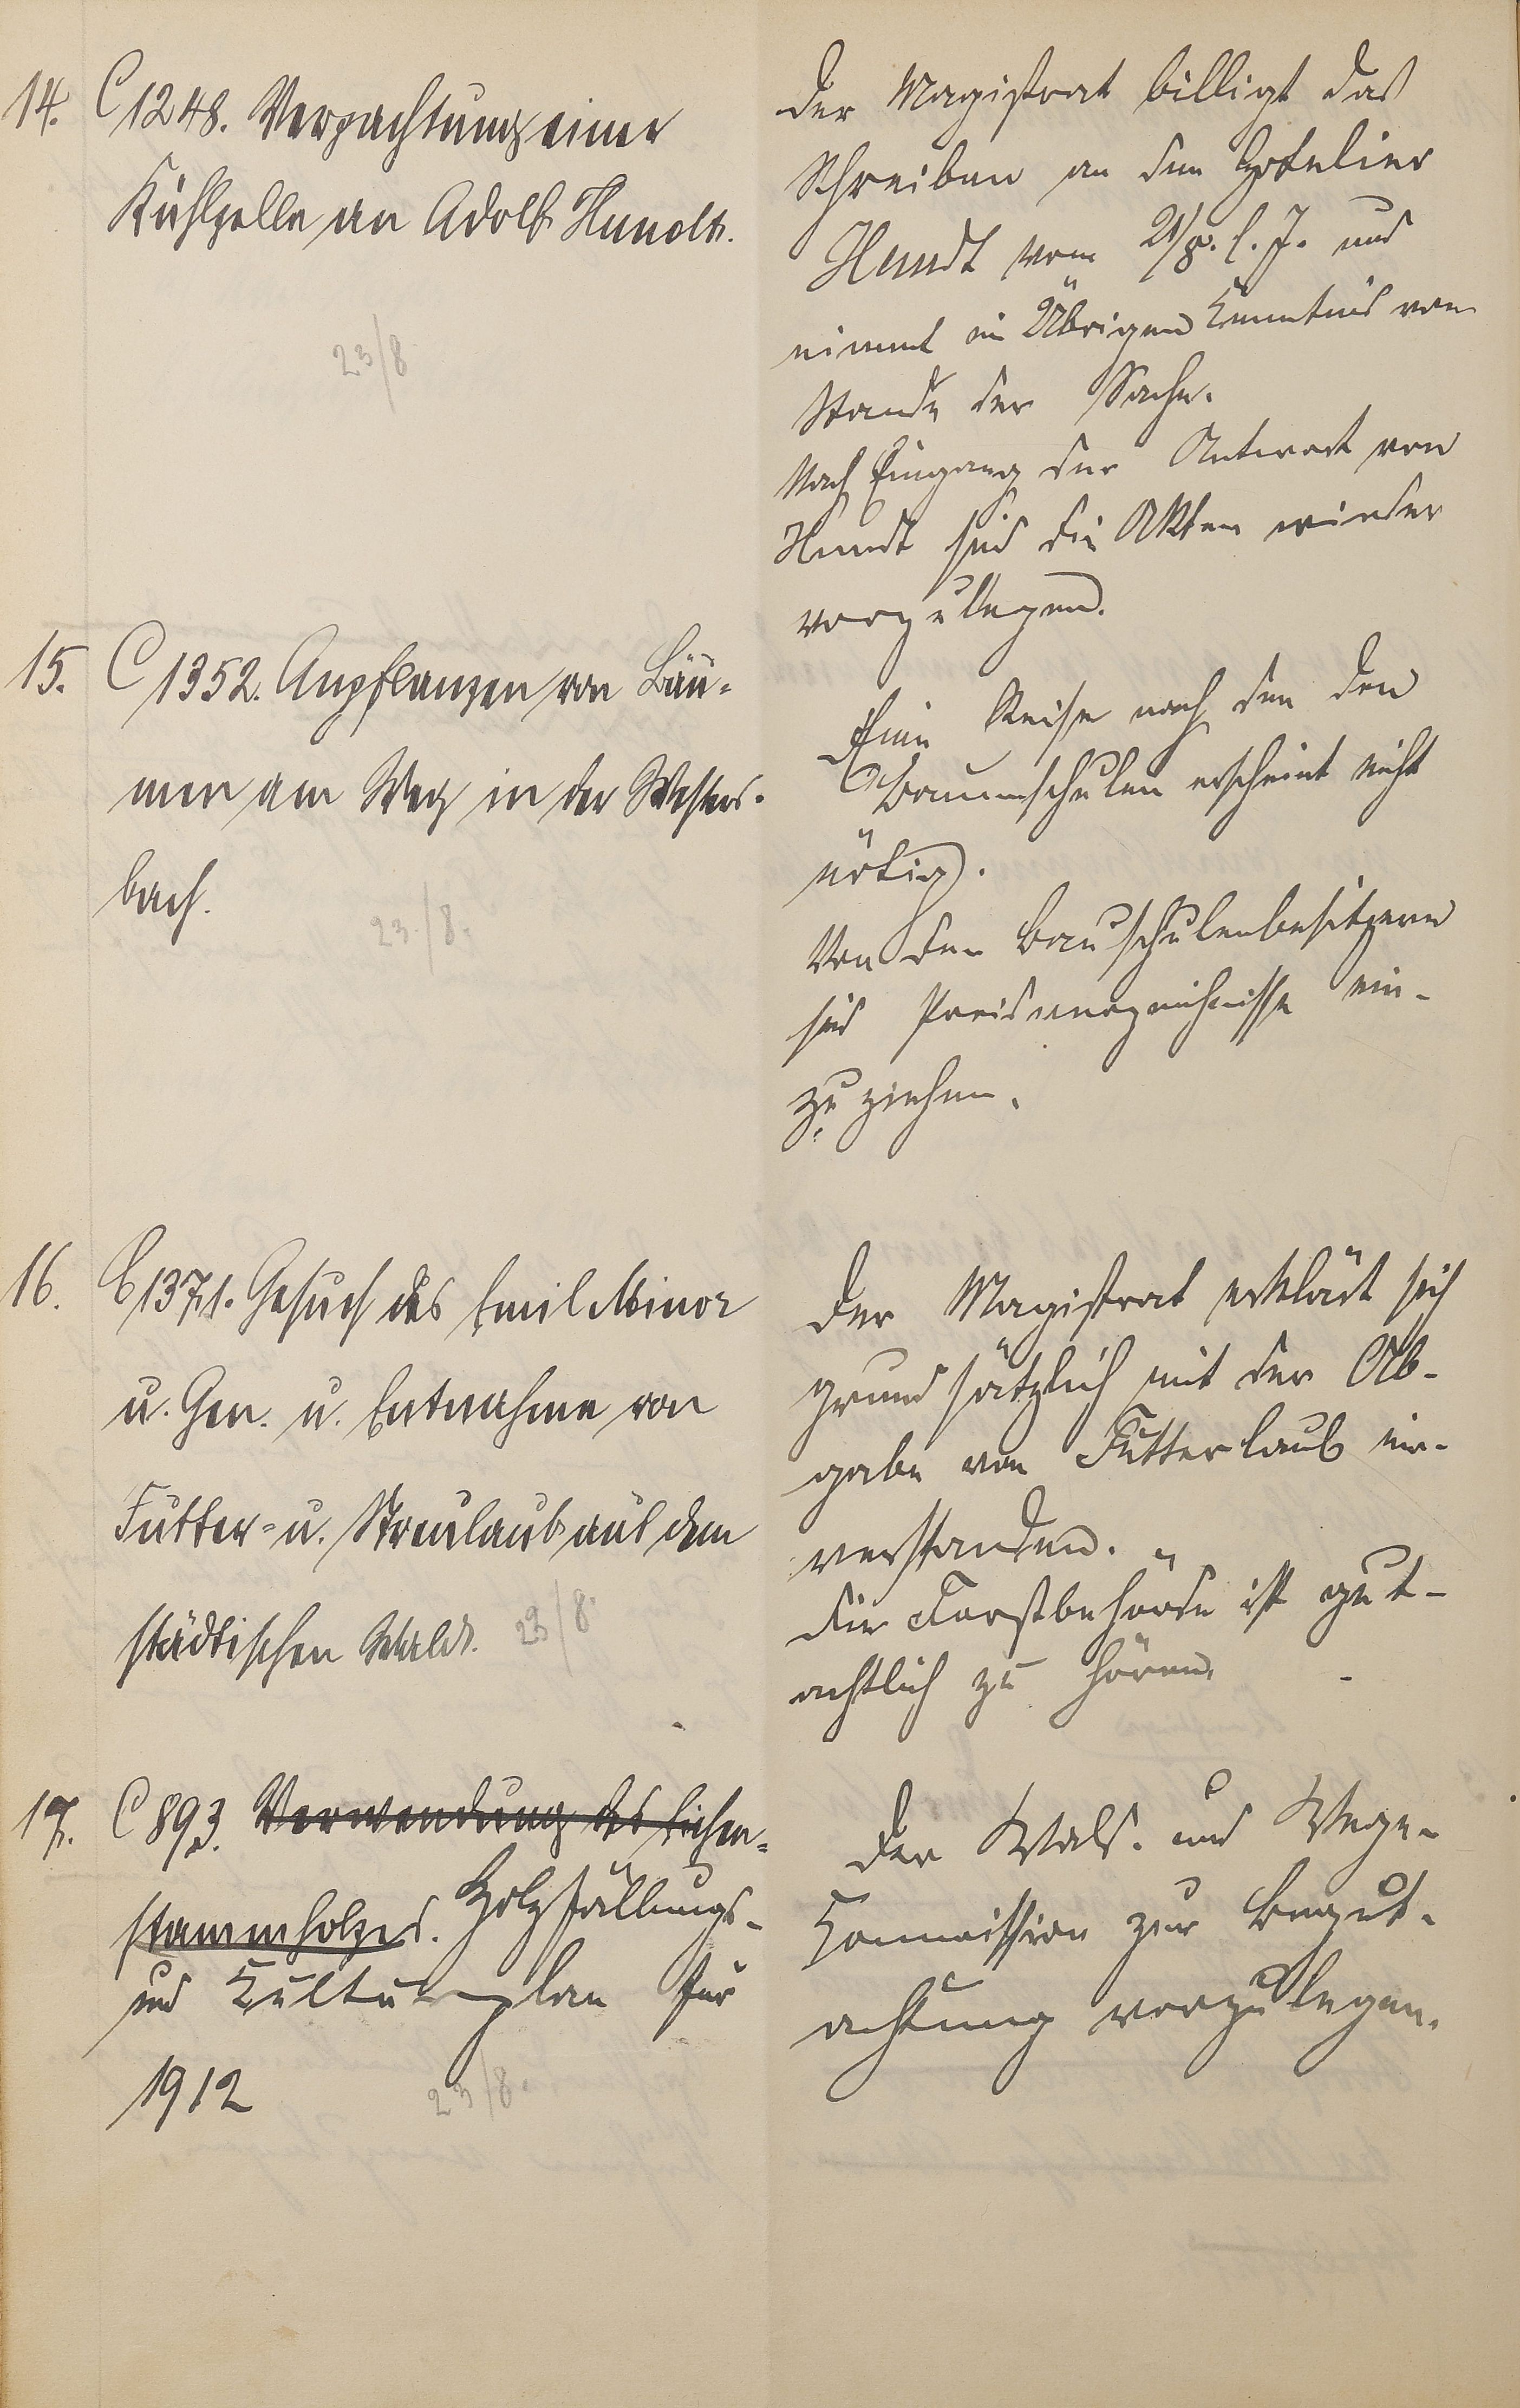 14. C 1248. Verpachtung einer
Kühlzelle an Adolf Hundt.
23/8
Der Magistrat billigt das
Schreiben an den Hotelier
Hundt vom 21/8. l. J. und
nimmt im Übrigen Kenntnis vom
Stande der Sache.
Nach Eingang der Antwort von
Hundt sind die Akten wieder
vorzulegen.
15. C 1352. Anpflanzen von Bäu-
men am Weg in der Westers-
bach.
23./8.
Eine Reise nach den den
Baumschulen erscheint nicht
nötig.
Von den Bauschulenbesitzern
sind Preisverzeichnisse ein-
zu ziehen.
16. C 1371. Gesuch des Emil Minor
u. Gen. u. Entnahme von
Futter- u. Streulaub aus dem
städtischen Wald. 23/8.
Der Magistrat erklärt sich
grundsätzlich mit der Ab-
gabe von Futterlaub ein-
verstanden.
Die Forstbehörde ist gut-
achtlich zu hören.
17. C 893. Verwendung des Eichen-
stammholzes. Holzfällungs-
und Kulturplan für
1912 23/8.
Der Wald- und Wege-
Kommission zur Begut-
achtung vorzulegen.